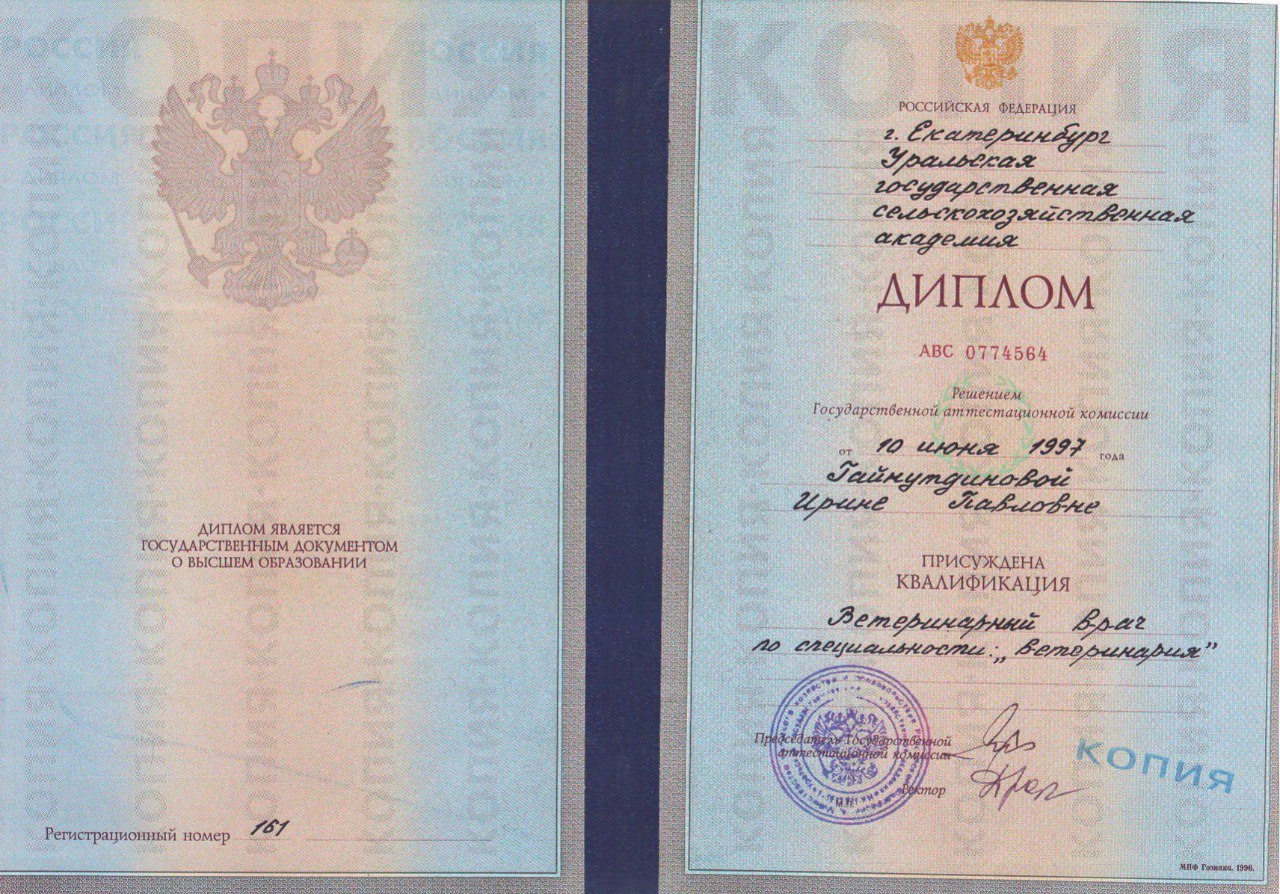 ДИПЛОМ ЯВЛЯЕТСЯ
ГОСУДАРСТВЕННЫМ ДОКУМЕНТОМ
О ВЫСШЕМ ОБРАЗОВАНИИ
Регистрационный номер 161
КОПИЯ
РОССИЙСКАЯ ФЕДЕРАЦИЯ
г. Екатеринбург
Уральская
государственная
сельскохозяйственная
академия
ДИПЛОМ
АВС 0774564
Решением
Государственной аттестационной комиссии
от 10 июня 1997 года
Гайнутдиновой
Ирине Павловне
ПРИСУЖДЕНА
КВАЛИФИКАЦИЯ
Ветеринарный врач
по специальности: „ветеринария"
Председатель Государственной
аттестационной комиссии
Ректор
КОПИЯ
МПФ Гознака. 1996.